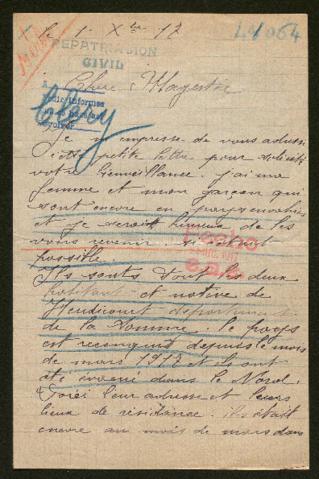 le 1 Xbre 17
44064
REPATRIATION
CIVIL
Chere Magestée
Je m empresse de vous adressé
cette petite lettre pour solicité
votre bienveillance. j'ai ma
femme et mon garçon qui
sont encore en pays envahis
et je serait heureux de les
voirs revenir si s'etait
possible.
Ils sonts tout les deux
habitant et notive de
Heudicourt departement
de la Somme. le pays
est reconquit depuis le mois
de mars 1917 et ils ont
été mené dans le Nord.
Voici leur adresse et leurs
lieux de résidence. ils était
encore au mois de mars dans